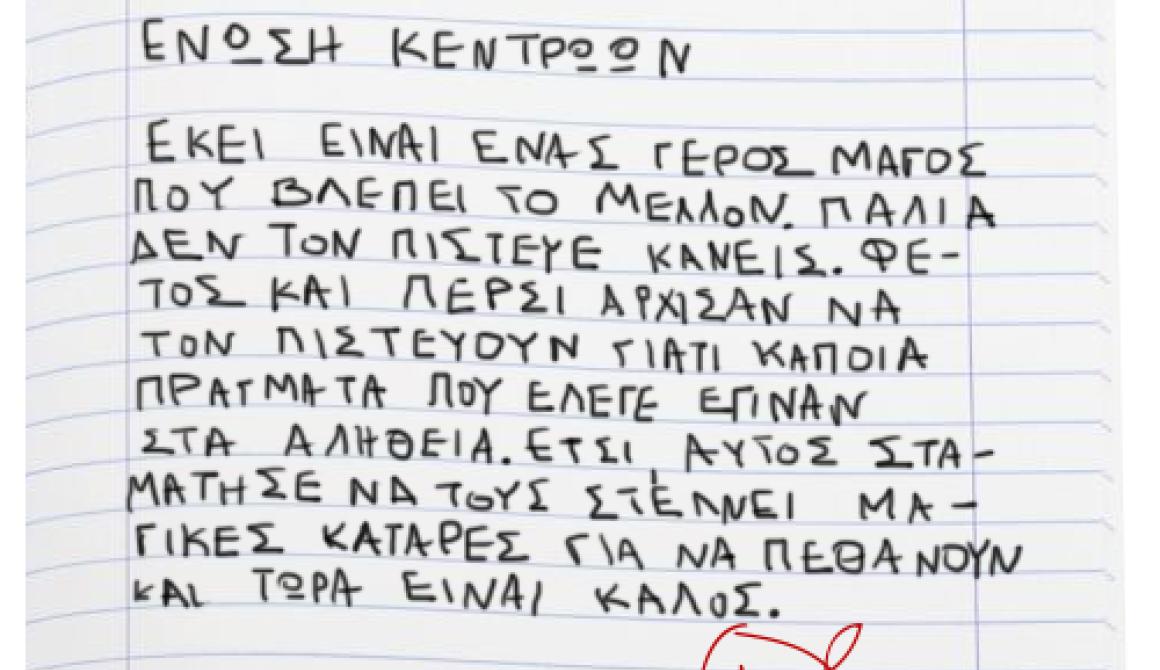 ΕΝΩΣΗ ΚΕΝΤΡΩΩΝ
ΕΚΕΙ ΕΙΝΑΙ ΕΝΑΣ ΓΕΡΟΣ ΜΑΓΟΣ
ΠΟΥ ΒΛΕΠΕΙ ΤΟ ΜΕΛΛΟΝ. ΠΑΛΙΑ
ΔΕΝ ΤΟΝ ΠΙΣΤΕΥΕ ΚΑΝΕΙΣ. ΦΕ-
ΤΟΣ ΚΑΙ ΠΕΡΣΙ ΑΡΧΙΣΑΝ ΝΑ
ΤΟΝ ΠΙΣΤΕΥΟΥΝ ΓΙΑΤΙ ΚΑΠΟΙΑ
ΠΡΑΓΜΑΤΑ ΠΟΥ ΕΛΕΓΕ ΕΓΙΝΑΝ
ΣΤΑ ΑΛΗΘΕΙΑ. ΕΤΣΙ, ΑΥΤΟΣ ΣΤΑ-
ΜΑΤΗΣΕ ΝΑ ΤΟΥΣ ΣΤΕΛΝΕΙ ΜΑ-
ΓΙΚΕΣ ΚΑΤΑΡΕΣ ΓΙΑ ΝΑ ΠΕΘΑΝΟΥΝ
ΚΑΙ ΤΩΡΑ ΕΙΝΑΙ ΚΑΛΟΣ.